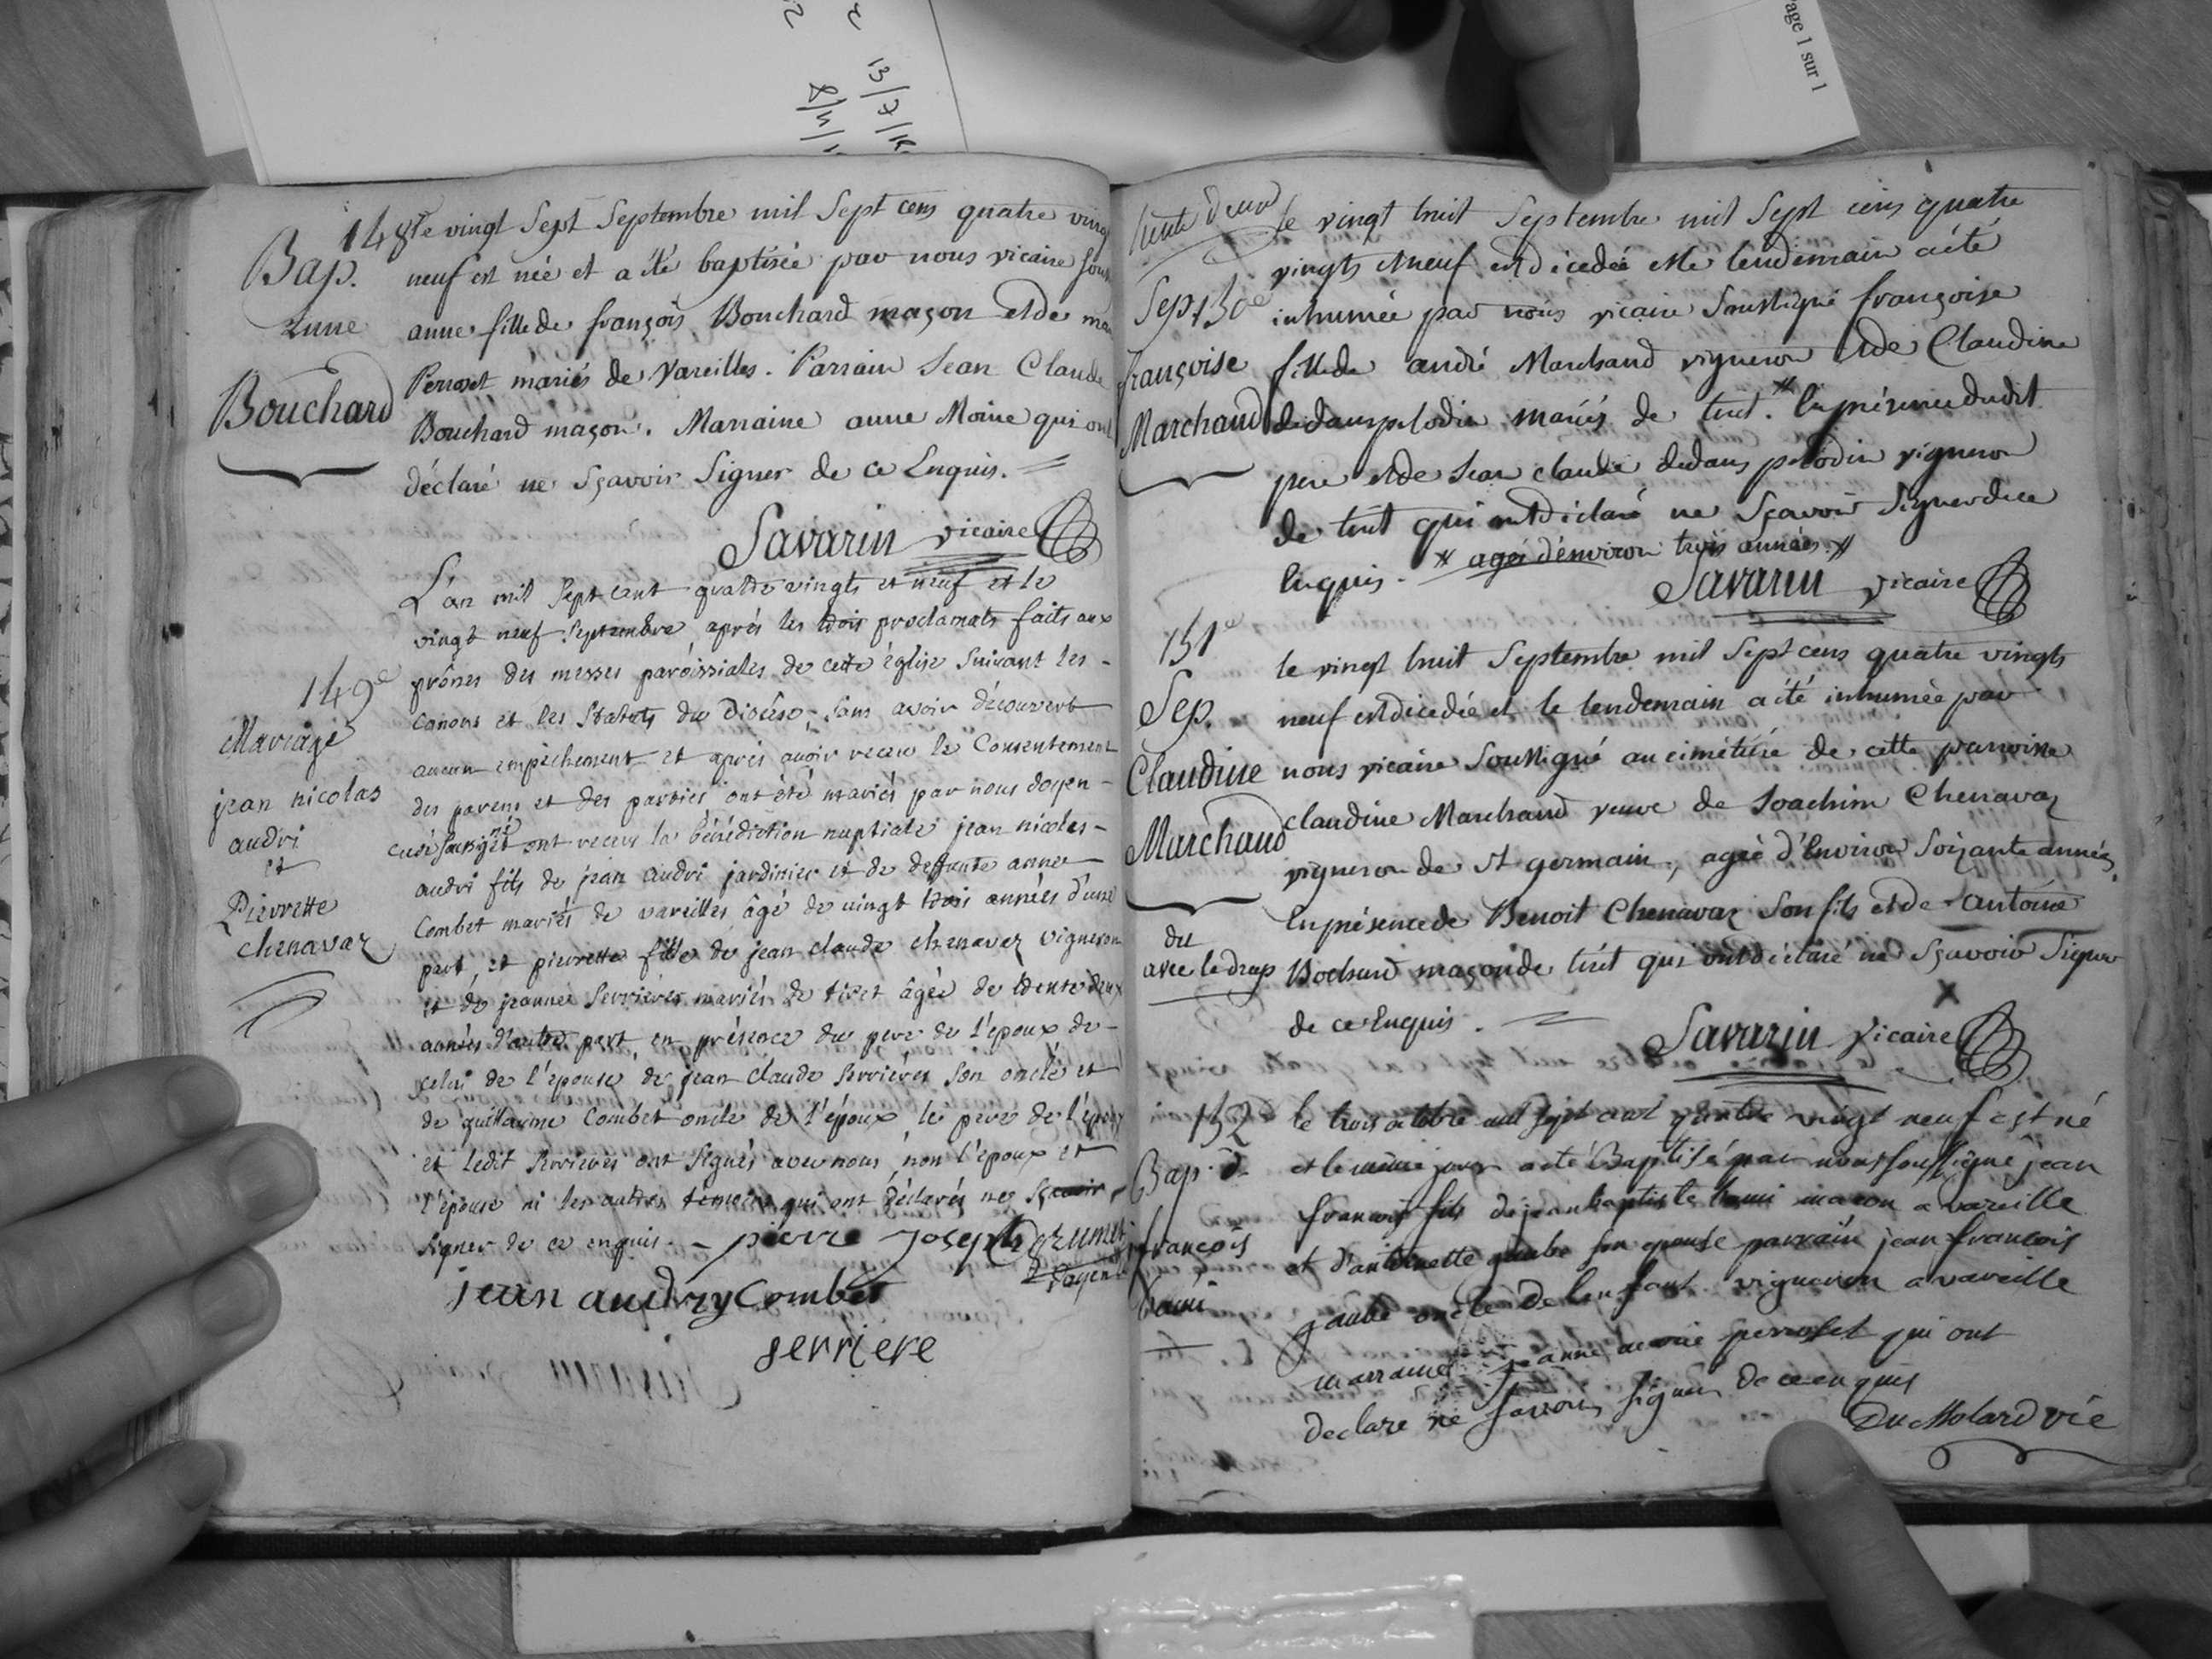 13/7/
Page 1 sur 1
148e
Bap.
anne
Bouchard
le vingt Sept Septembre mil Sept cens quatre vingt
neuf est née et a été baptisée par nous vicaire
anne fille de françois Bouchard maçon et de
Perroset mariés de Vareilles. Parrain Jean Claude
Bouchard maçon. Marraine anne Moine qui ont
déclaré ne Sçavoir Signer de ce Enquis.
Savarin vicaire
149e
Mariage
jean nicolas
audri
et
Pierrette
chenavaz
L'an mil Sept cent quatre vingts et neuf et le
vingt neuf Septembre, après les trois proclamats faits aux
prônes des messes paroissiales de cette église Suivant les
canons et les Statuts du Diocèse, sans avoir découvert
aucun empêchement et après avoir receu le Consentement
des parens et des parties ont été mariés par nous doyen
curé soussigné et ont receu la bénédiction nuptiale jean nicolas
audri fils de jean audri jardinier et de deffunte anne
Combet mariés de vareilles âgé de vingt trois années d'une
part, et pierrette fille de jean claude chenavaz vigneron
et de jeanne Serrieres mariés de tiret âgée de trente deux
années d'autre part, en présence du pere de l'epoux de
celui de l'epouse de jean claude Serrieres son oncle et
de guillaume Combet oncle de l'époux le pere de l'époux
et ledit Serrieres ont Signés avec nous, non l'epoux et
l'épouse ni les autres témoins qui ont déclarés ne Sçavoir
Signer de ce enquis. pierre Joseph
Doyen
jean audry Combet
serriere
trente deux
Sep. 150e
françoise
Marchand
le vingt huit Septembre mil Sept cens quatre
vingts et neuf est décedée et le lendemain a été
inhumée par nous vicaire Soussigné françoise
fille de andré Marchand vigneron et de Claudine
dedans pelodin mariés de tiret. * En présence dudit
pere et de Jean claude dedans pelodin vigneron
de tiret qui ont déclaré ne Sçavoir Signer de ce
Enquis. * agée d'environ trois années *
Savarin vicaire
151e
Sep.
Claudine
Marchand
du
avec le drap
le vingt huit Septembre mil Sept cens quatre vingts
neuf est décedée et le lendemain a été inhumée par
nous vicaire Soussigné au cimétiére de cette parroisse
claudine Marchand veuve de Joachim Chenavaz
vigneron de St germain, agée d'Environ Soixante années,
En présence de Benoit Chenavaz Son fils et de antoine
Bochard maçon de tiret qui ont déclaré ne Sçavoir Signer
de ce Enquis.
Savarin Vicaire
152
Bap. d.
françois
le trois octobre mil sept cent quatre vingt neuf est né
et le même jour a été Baptisé par nous soussigné jean
francois fils de jean baptiste maçon a vareille
et d'antoinette son epouse parrain jean francois
oncle de lenfant vigneron a vareille
marraine jeanne perroset qui ont
declare ne savoir signer de ce enquis
Du Molard vic